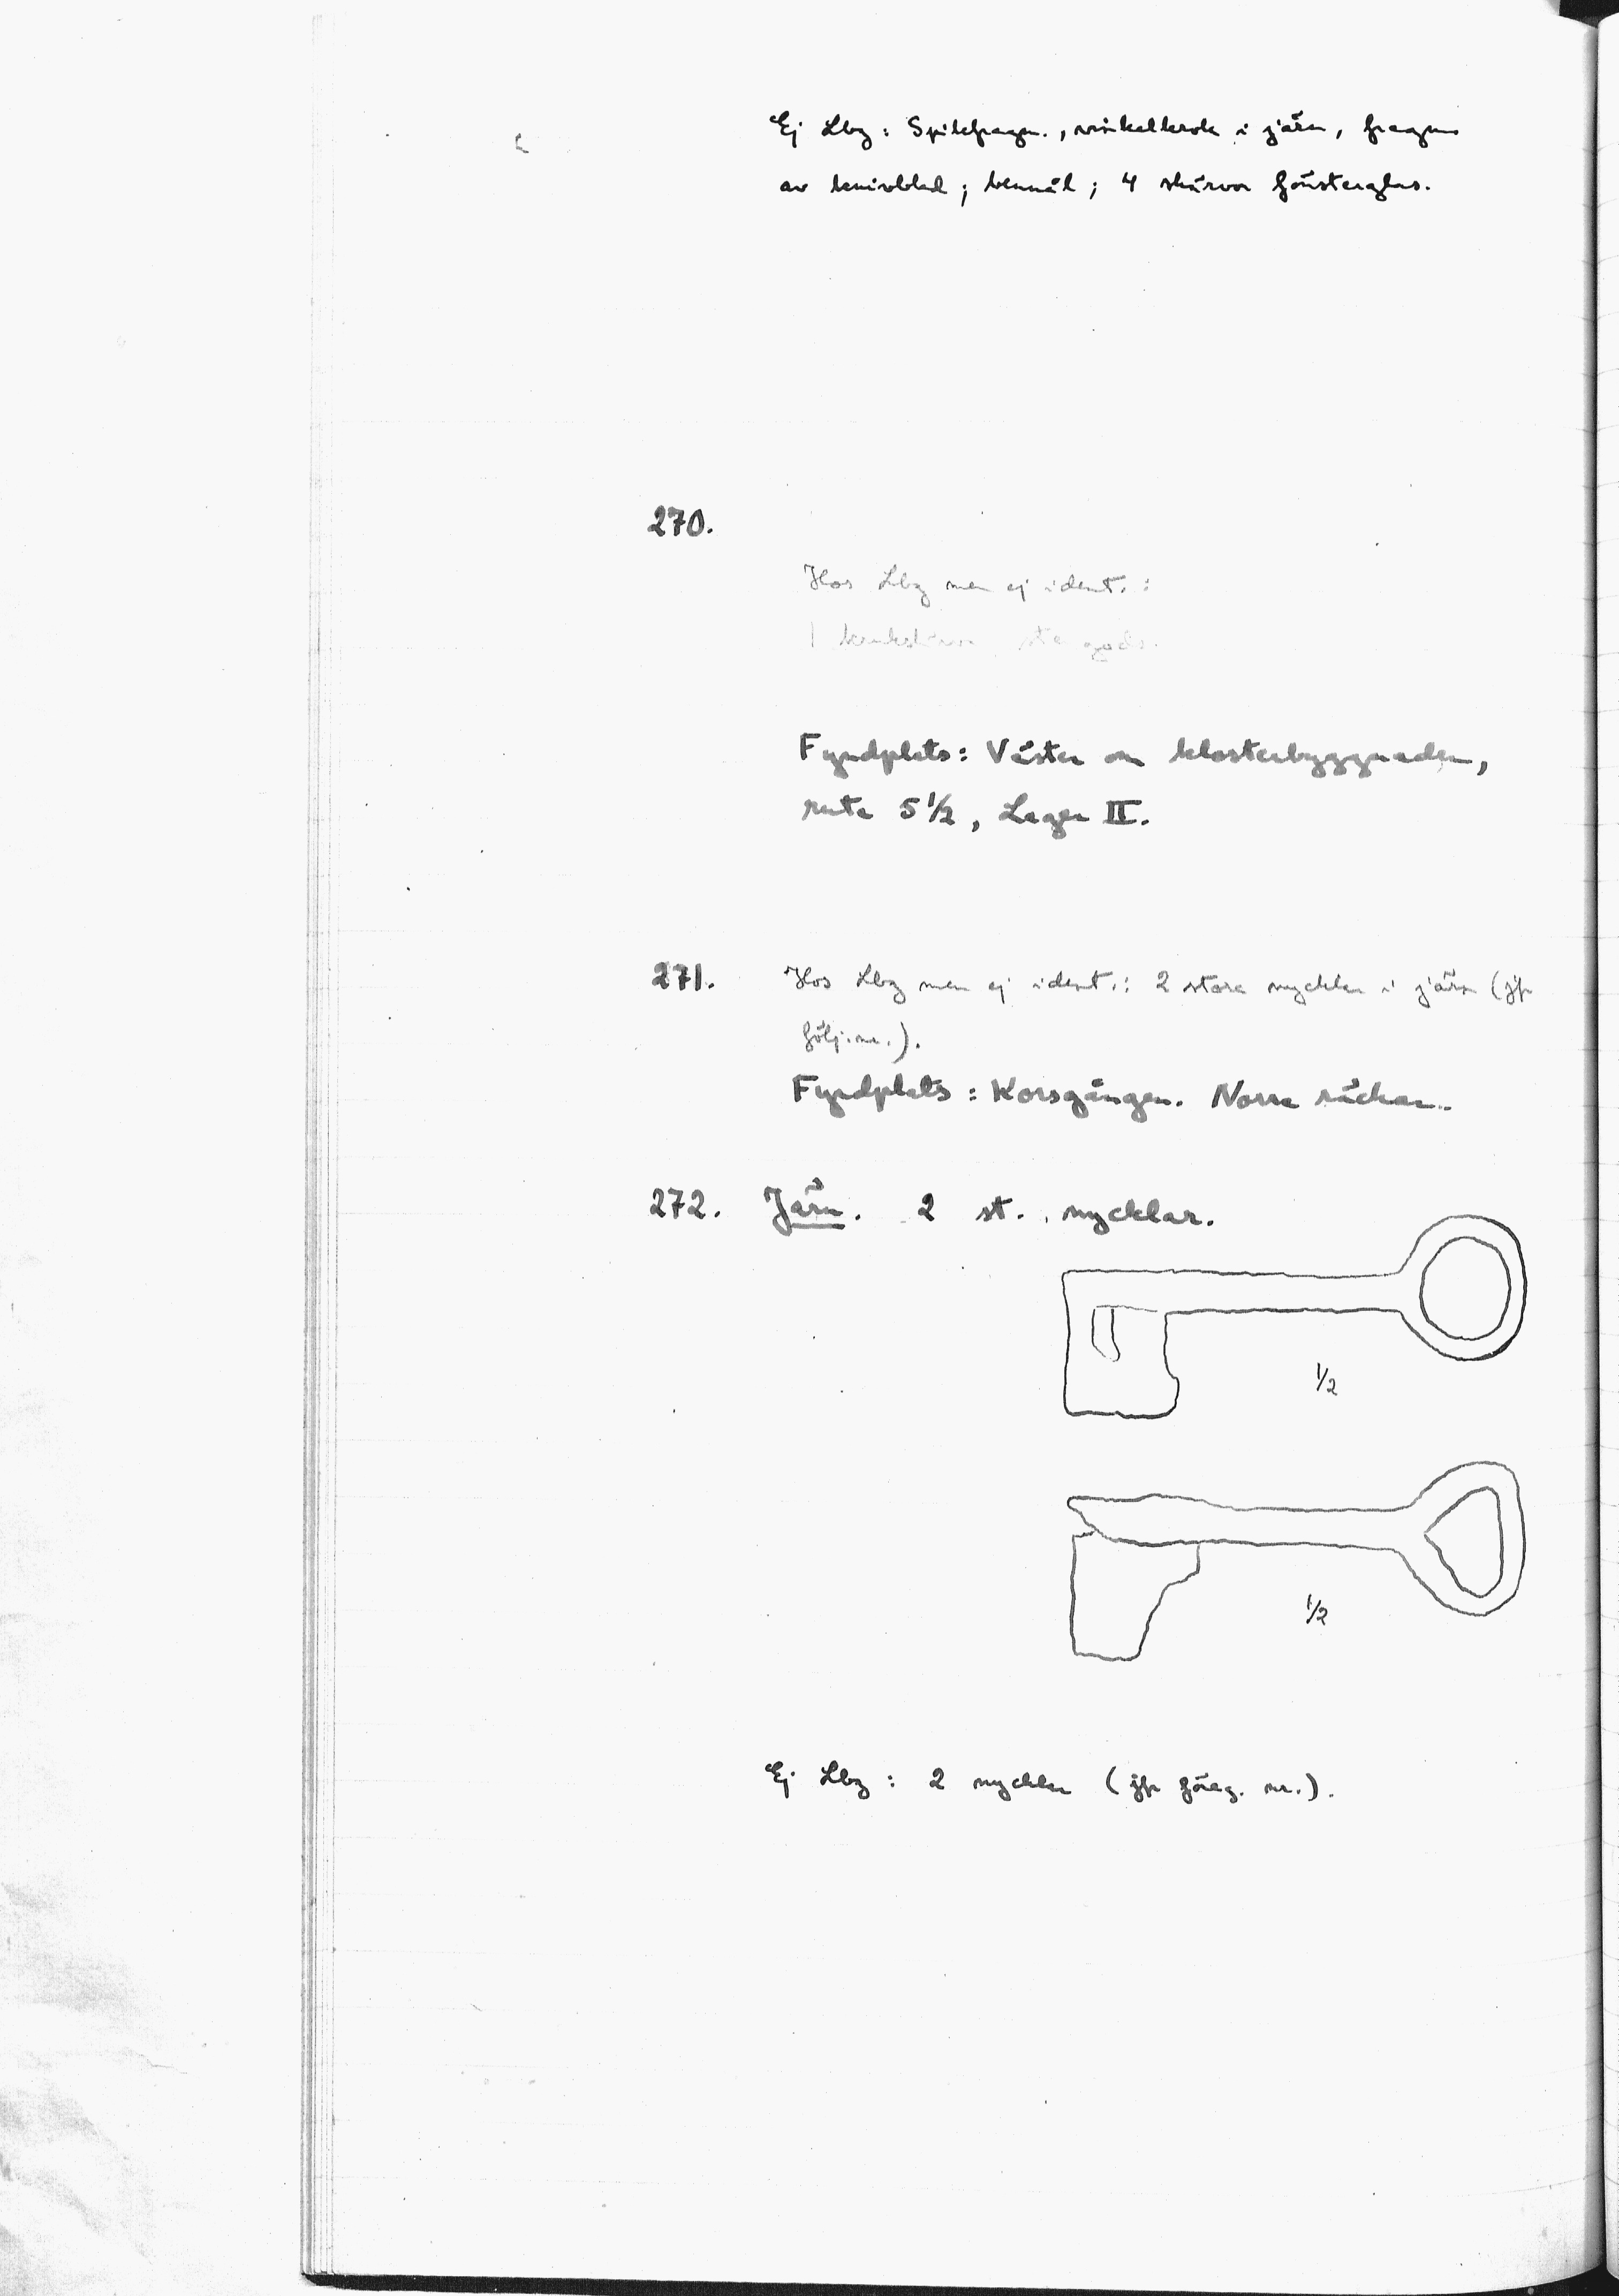 Ej Lbg: Spikfragm., vinkelkrok i järn, fragm
av knivblad; bennål; 4 skärvor fönsterglas.
270.
Hos Lbg men ej ident.:
1 krukskärva stengods.
Fyndplats: Väster om klosterbyggnaden,
ruta 5 1/2, Lager III.
271. Hos Lbg men ej ident.: 2 stora nycklar i järn (jfr
följ.nr.).
Fyndplats: Korsgången. Norra räckan.
272. Järn. 2 st. nycklar.
1/2
1/2
Ej Lbg: 2 nycklar (jfr föreg. nr.).